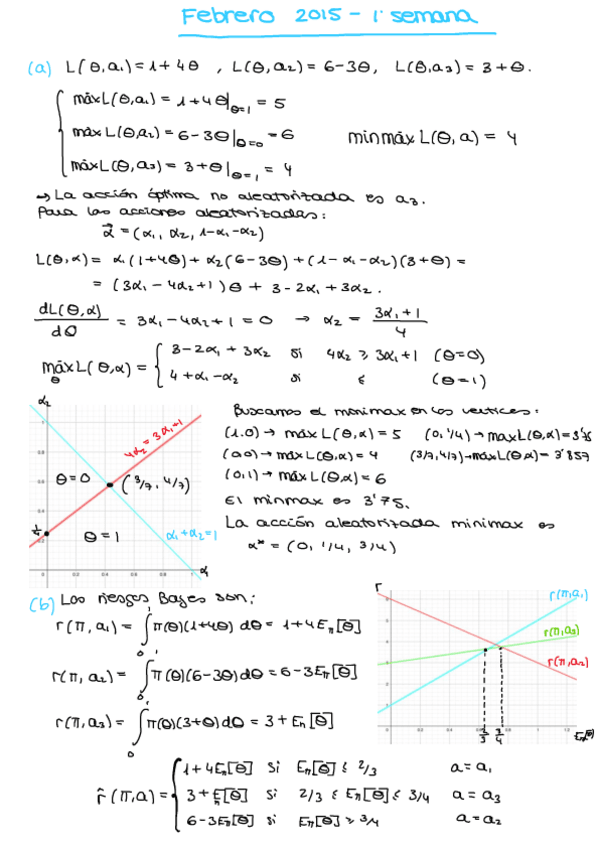 Febrero 2015 - 1ª semana
(a) L(θ,a₁)=1+4θ , L(θ,a₂)=6-3θ, L(θ,a₃)=3+θ.
máxL(θ,a₁)=1+4θ|θ=1 = 5
máxL(θ,a₂)=6-3θ|θ=0 =6
minmáxL(θ,a)=4
máxL(θ,a₃)=3+θ|θ=1 = 4
→ La acción óptima no aleatorizada es a₃.
Para las acciones aleatorizadas:
α⃗ =(α₁, α₂, 1-α₁-α₂)
L(θ,α)= α₁(1+4θ)+α₂(6-3θ)+(1-α₁-α₂)(3+θ)=
= (3α₁-4α₂+1)θ + 3-2α₁+3α₂.
dL(θ,α)/dθ = 3α₁-4α₂+1=0 → α₂= (3α₁+1)/4
máx L(θ,α)= { 3-2α₁+3α₂ si 4α₂ ≥ 3α₁+1 (θ=0)
θ
4+α₁-α₂ si ≤ (θ=1)
α₂
4α₂=3α₁+1
θ=0
(3/7, 4/7)
1/4
θ=1
α₁+α₂=1
α₁
1
0.8
0.6
0.4
0.2
0
0.2
0.4
0.6
0.8
1
Buscamos el minimax en los vertices:
(1,0)→ máxL(θ,α)=5 (0,1/4)→maxL(θ,α)=3'75
(0,0)→ máxL(θ,α)=4 (3/7,4/7)→máxL(θ,α)=3'857
(0,1)→máxL(θ,α)=6
El minmax es 3'75.
La acción aleatorizada minimax es
α*=(0, 1/4, 3/4)
(b) Los riesgos Bayes son:
r(π,a₁)=∫₀¹π(θ)(1+4θ) dθ= 1+4Eπ[θ]
r(π,a₂)=∫₀¹π(θ)(6-3θ)dθ=6-3Eπ[θ]
r(π,a₃)=∫₀¹π(θ)(3+θ)dθ=3+Eπ[θ]
r
r(π,a₁)
r(π,a₃)
r(π,a₂)
2/3
3/4
Eπ[θ]
r̂(π,a)= { 1+4Eπ[θ] si Eπ[θ] ≤ 2/3 a=a₁
3+Eπ[θ] si 2/3 ≤ Eπ[θ] ≤ 3/4 a=a₃
6-3Eπ[θ] si Eπ[θ] ≥ 3/4 a=a₂